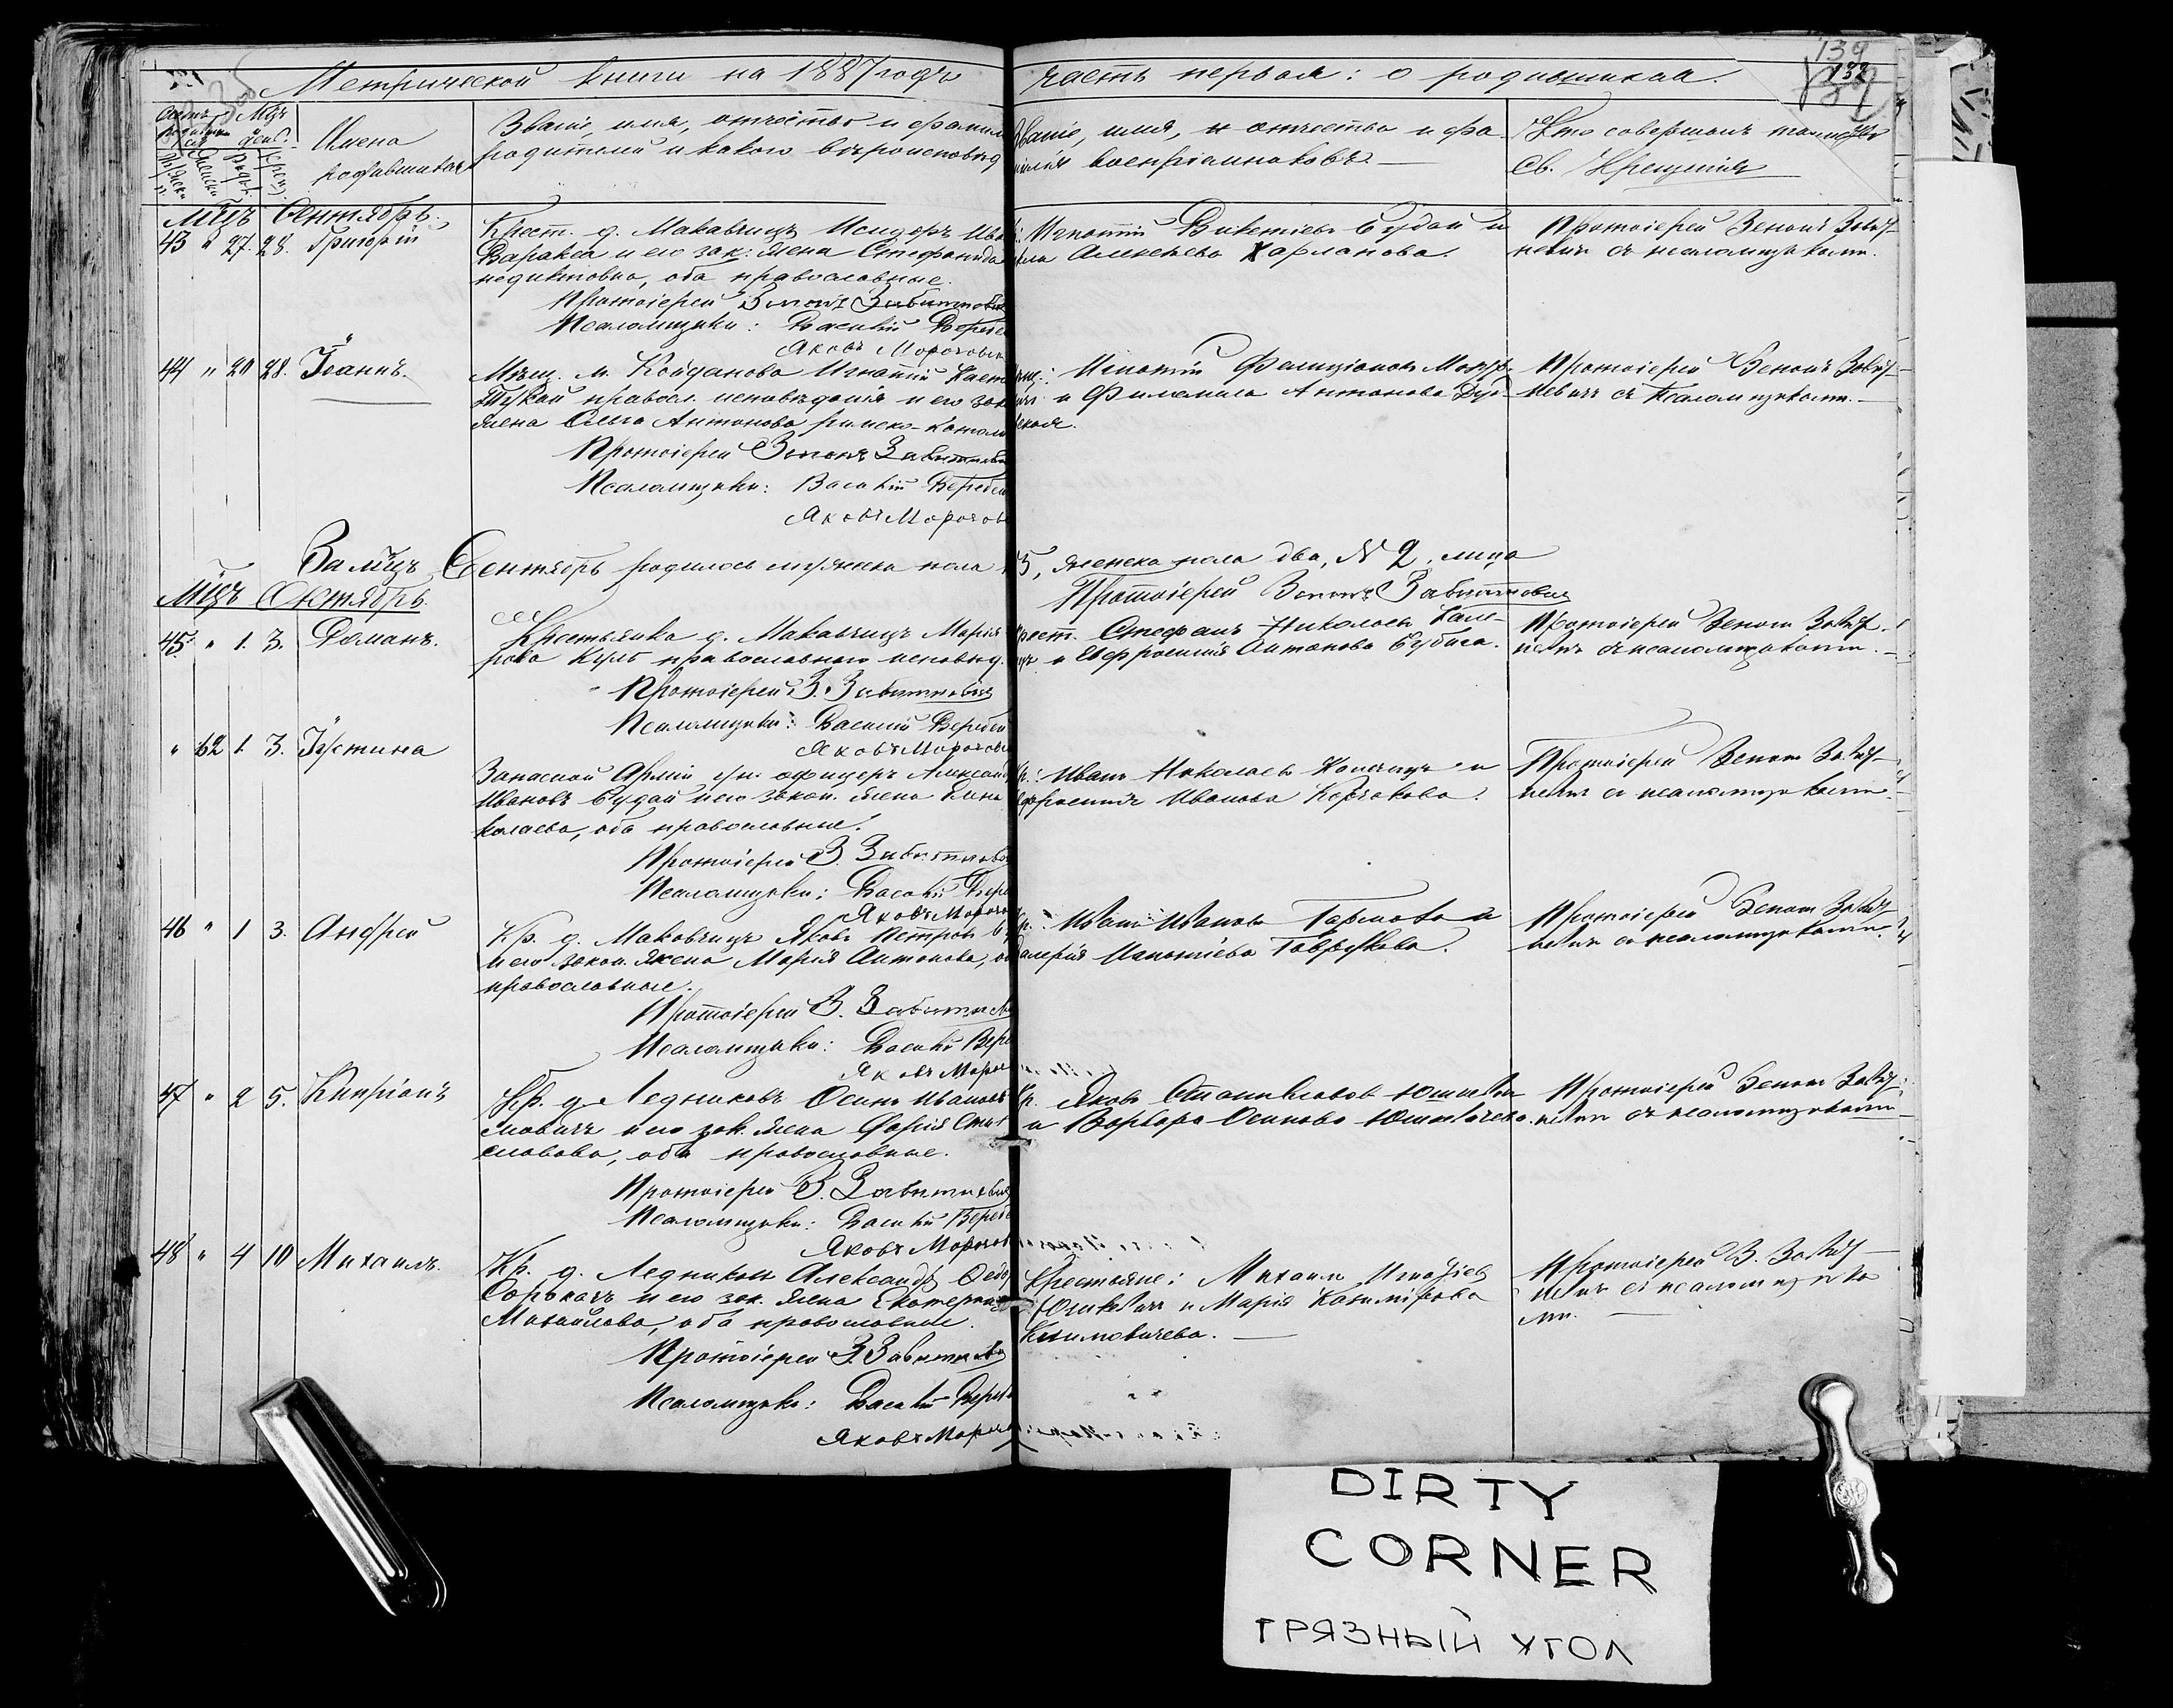 Метрической книги на 1887 годъ
часть первая: о родившихся.
139
132
Мцъ
Имена
родившихся
Званіе, имя, отчество и фамил
родителей и какого вѣроисповѣд
Званіе, имя, и отчество и фа
милія воспріемниковъ
Кто совершалъ таинство
Св. Крещенія
Мцъ Сентябрь.
43 " 27. 28. Григорій
Крест. д. Макавчицъ Исидоръ Ива
Варакса и его зак: жена Стефанида
недиктовна, оба православные.
Протоіерей Зенонъ Завитнович
Псаломщики: Василій Веребе
Яковъ Морозов
Игнатій Викентіевъ Будай и
Алексѣева Харланова.
Протоіерей Зенонъ Завит-
невичъ съ псаломщиками.
44 " 20 28. Іоаннъ.
Мѣщ. м. Койданова Игнатій
правосл. исповѣданія и его зак
жена Ольга Антонова римско-катол
Протоіерей Зенонъ Завитнев
Псаломщики: Василій Веребе
Яковъ Морозов
Игнатій Фелиціановъ
и Филомила Антонова
ская.
Протоіерей Зенонъ Завит-
невичъ съ Псаломщиками.
За мцъ Сентябрь родилось мужска пола
5, женска пола два, № 2, лица
Протоіерей Зенонъ Завитневич
Мцъ Октябрь.
45. " 1. 3. Романъ.
Крестьянка д. Макавчицъ Марія
рова Куль православнаго исповѣд.
Протоіерей З. Завитневич
Псаломщики: Василій Веребей
Яковъ Морозов
крест. Стефанъ Николаевъ
и Евфросинія Антонова Бубиса.
Протоіерей Зенонъ Завит-
невичъ съ псаломщиками.
" 62 1. 3. Іустина
Запасной Арміи ун. офицеръ Александ
Ивановъ Будай и его закон. жена
колаева, оба православные.
Протоіерей З. Завитнев
Псаломщики: Василій Вере
Яковъ Морозо
Кр: Иванъ Николаевъ и
Ефросинія Иванова Корзакова.
Протоіерей Зенонъ Завит-
невичъ съ псаломщиками.
46 " 1 3. Андрей
Кр. д. Макавчицъ Яковъ Петровъ
и его закон. жена Марія Антонова, об
православные.
Протоіерей З. Завитнев
Псаломщики: Василій Вере
Яковъ Мороз
Кр: Иванъ Ивановъ и
Валерія Игнатіева Гаврукова.
Протоіерей Зенонъ Завит-
невичъ съ псаломщиками.
47 " 2 5. Кипріанъ
Кр. д. Ледниковъ Осипъ Ивановъ
и его зак. жена Дарія
славова, оба православные.
Протоіерей З. Завитневич
Псаломщики: Василій Веребе
Яковъ Морозов
Кр. Яковъ Станиславовъ Юшкевич
и Варвара Осипова Юшкевичева.
Протоіерей Зенонъ Завит-
невичъ съ псаломщиками
48 " 4 10 Михаилъ.
Кр. д. Ледниковъ Александръ Федо
Сорокачъ и его зак. жена Екатерина
Михайлова, оба православные.
Протоіерей З. Завитнев
Псаломщики: Василій Вереб
Яковъ Мороз
Крестьяне: Михаилъ Игнатіев
Юшкевичъ и Марія Казимірова
Климовичева.
Протоіерей З. Завит-
невичъ съ псаломщика
ми.
DIRTY
CORNER
ГРЯЗНЫЙ УГОЛ